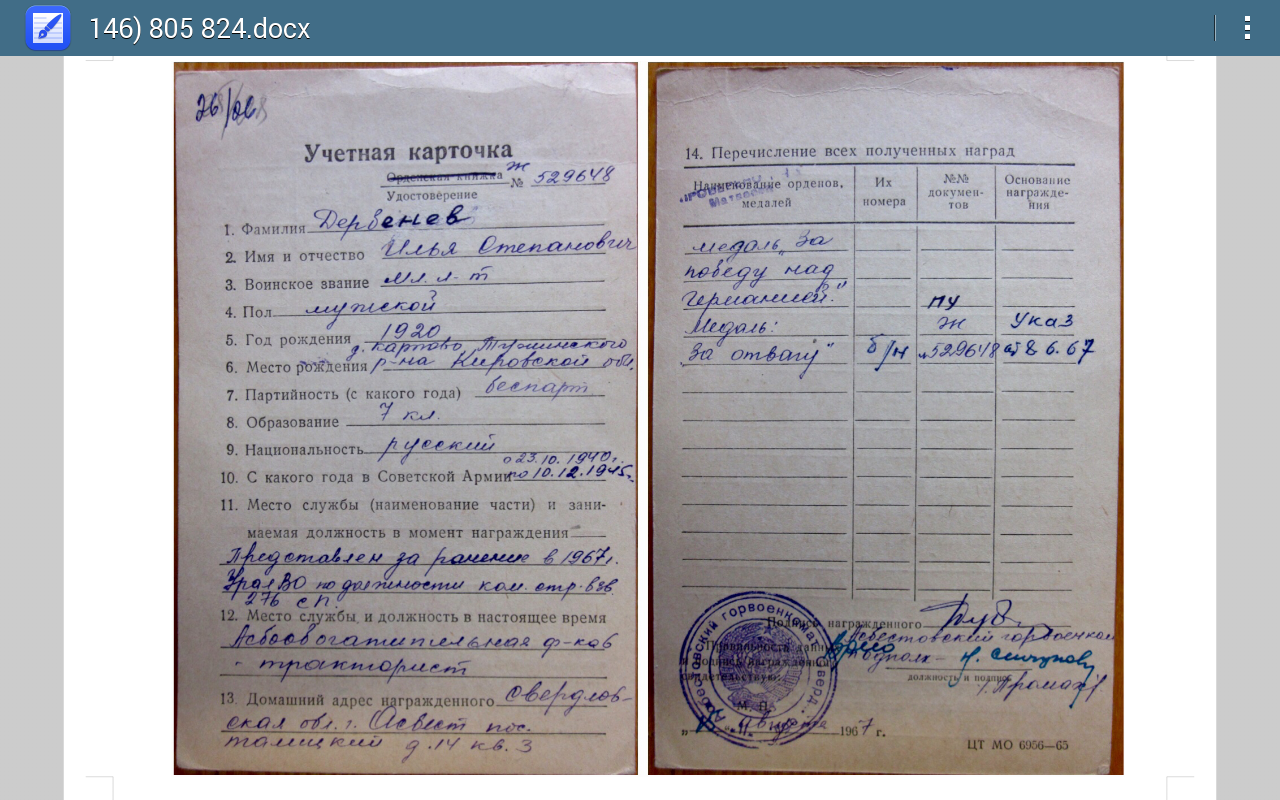 146) 805 824.docx
Учетная карточка
Орденская книжка
Удостоверение
Ж
№ 529648
1. Фамилия Дервенев
2. Имя и отчество Илья Степанович
3. Воинское звание мл. л-т
4. Пол мужской
5. Год рождения 1920
д. Картово Тужинского
6. Место рождения р-на Кировской обл.
7. Партийность (с какого года) беспарт
8. Образование 7 кл.
9. Национальность русский
с 23.10.1940г.
10. С какого года в Советской Армии по 10.12.1945г.
11. Место службы (наименование части) и зани-
маемая должность в момент награждения
Представлен за ранение в 1967г.
УралВО по должности ком. стр. взв.
276 сп.
12. Место службы и должность в настоящее время
Асбообогатительная ф-ка
- тракторист
13. Домашний адрес награжденного Свердлов-
ская обл. г. Асбест пос.
д. 14 кв. 3
14. Перечисление всех полученных наград
Наименование орденов, медалей
Их номера
№№ докумен-тов
Основание награжде-ния
медаль „За
победу над
Германией."
Медаль:
„За отвагу"
б/н
ПУ
Ж
№529648
Указ
от 8 6.67
Подпись награжденного
Асбестовский горвоенком
Подполк-
должность и подпись
М. П.
августа 1967 г.
ЦТ МО 6956—65